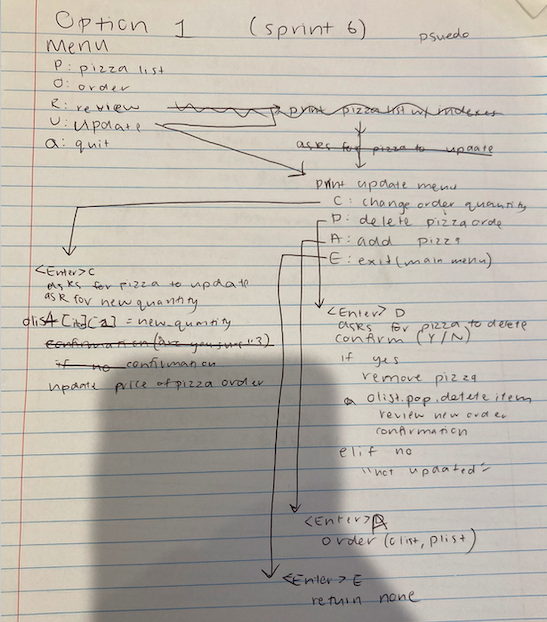 Option 1 (sprint 6) psuedo
Menu
P: pizza list
O: order
R: review print pizza list w/ indexes
U: update
Q: quit
asks for pizza to update
print update menu
C: change order quantity
D: delete pizza orde
A: add pizza
E: exit (main menu)
<Enter> C
asks for pizza to update
ask for new quantity
olist [ ][2] = new quantity
confirmation (Are you sure"?)
if no confirmation
update price of pizza order
<Enter> D
asks for pizza to delete
confirm (Y/N)
if yes
remove pizza
olist.pop.delete item
review new order
confirmation
elif no
"not updated"
<Enter> A
order (olist, plist)
<Enter> E
return none